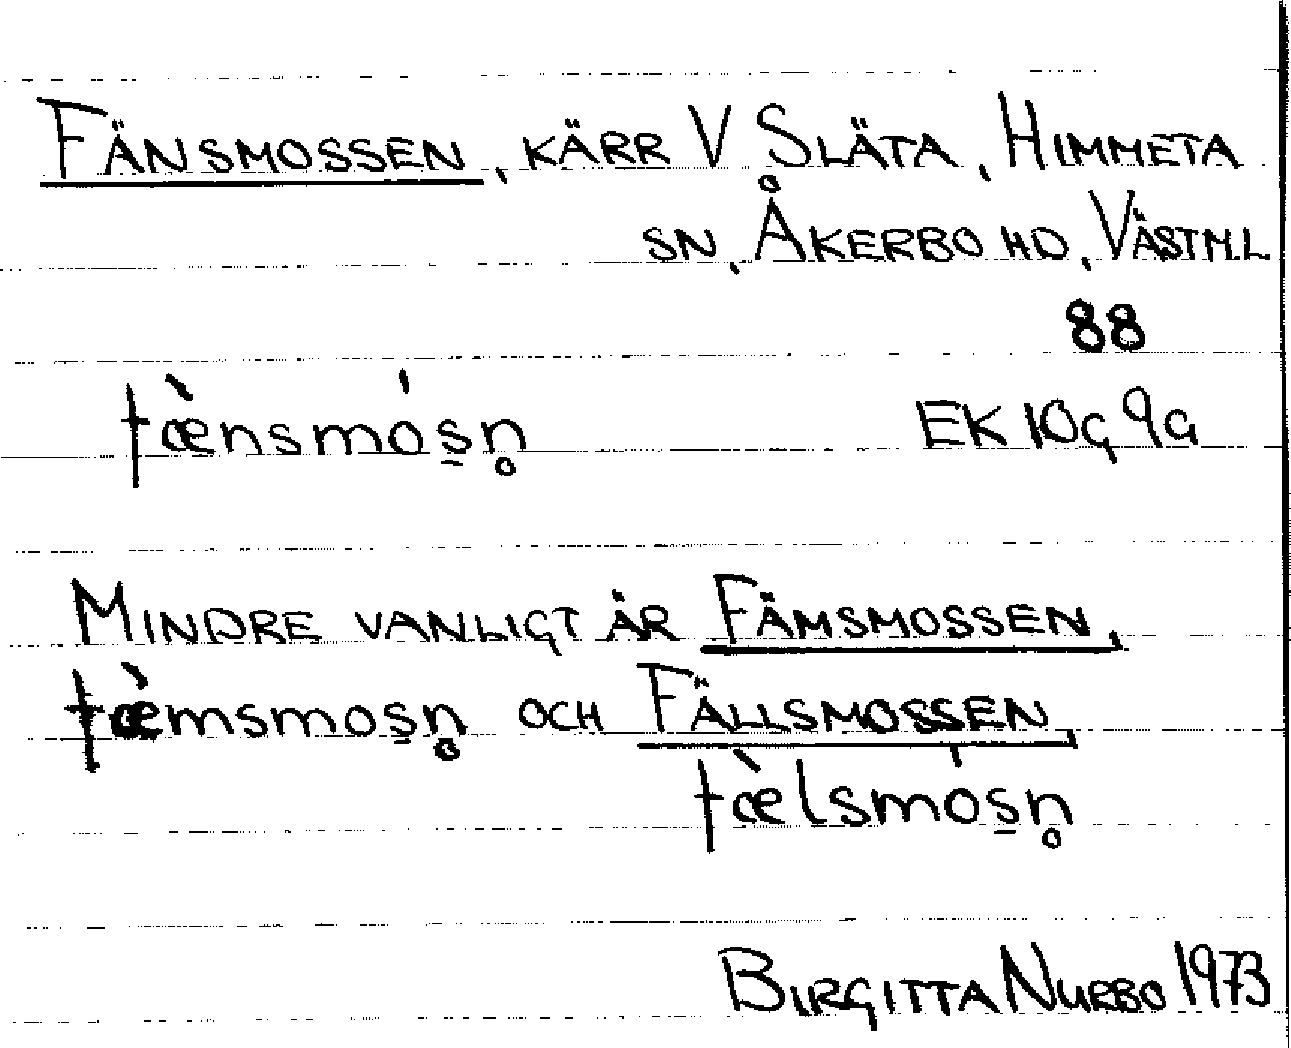 FÄNSMOSSEN, KÄRR V SLÄTA, HIMMETA
SN, ÅKERBO HD, VÄSTM.L
88
fæ̀nsmós̠n̥ EK 10g 9a
MINDRE VANLIGT ÄR FÄMSMOSSEN,
fæ̀msmos̠n̥ OCH FÄLLSMOSSEN,
fæ̀lsmós̠n̥
BIRGITTA NURBO 1973